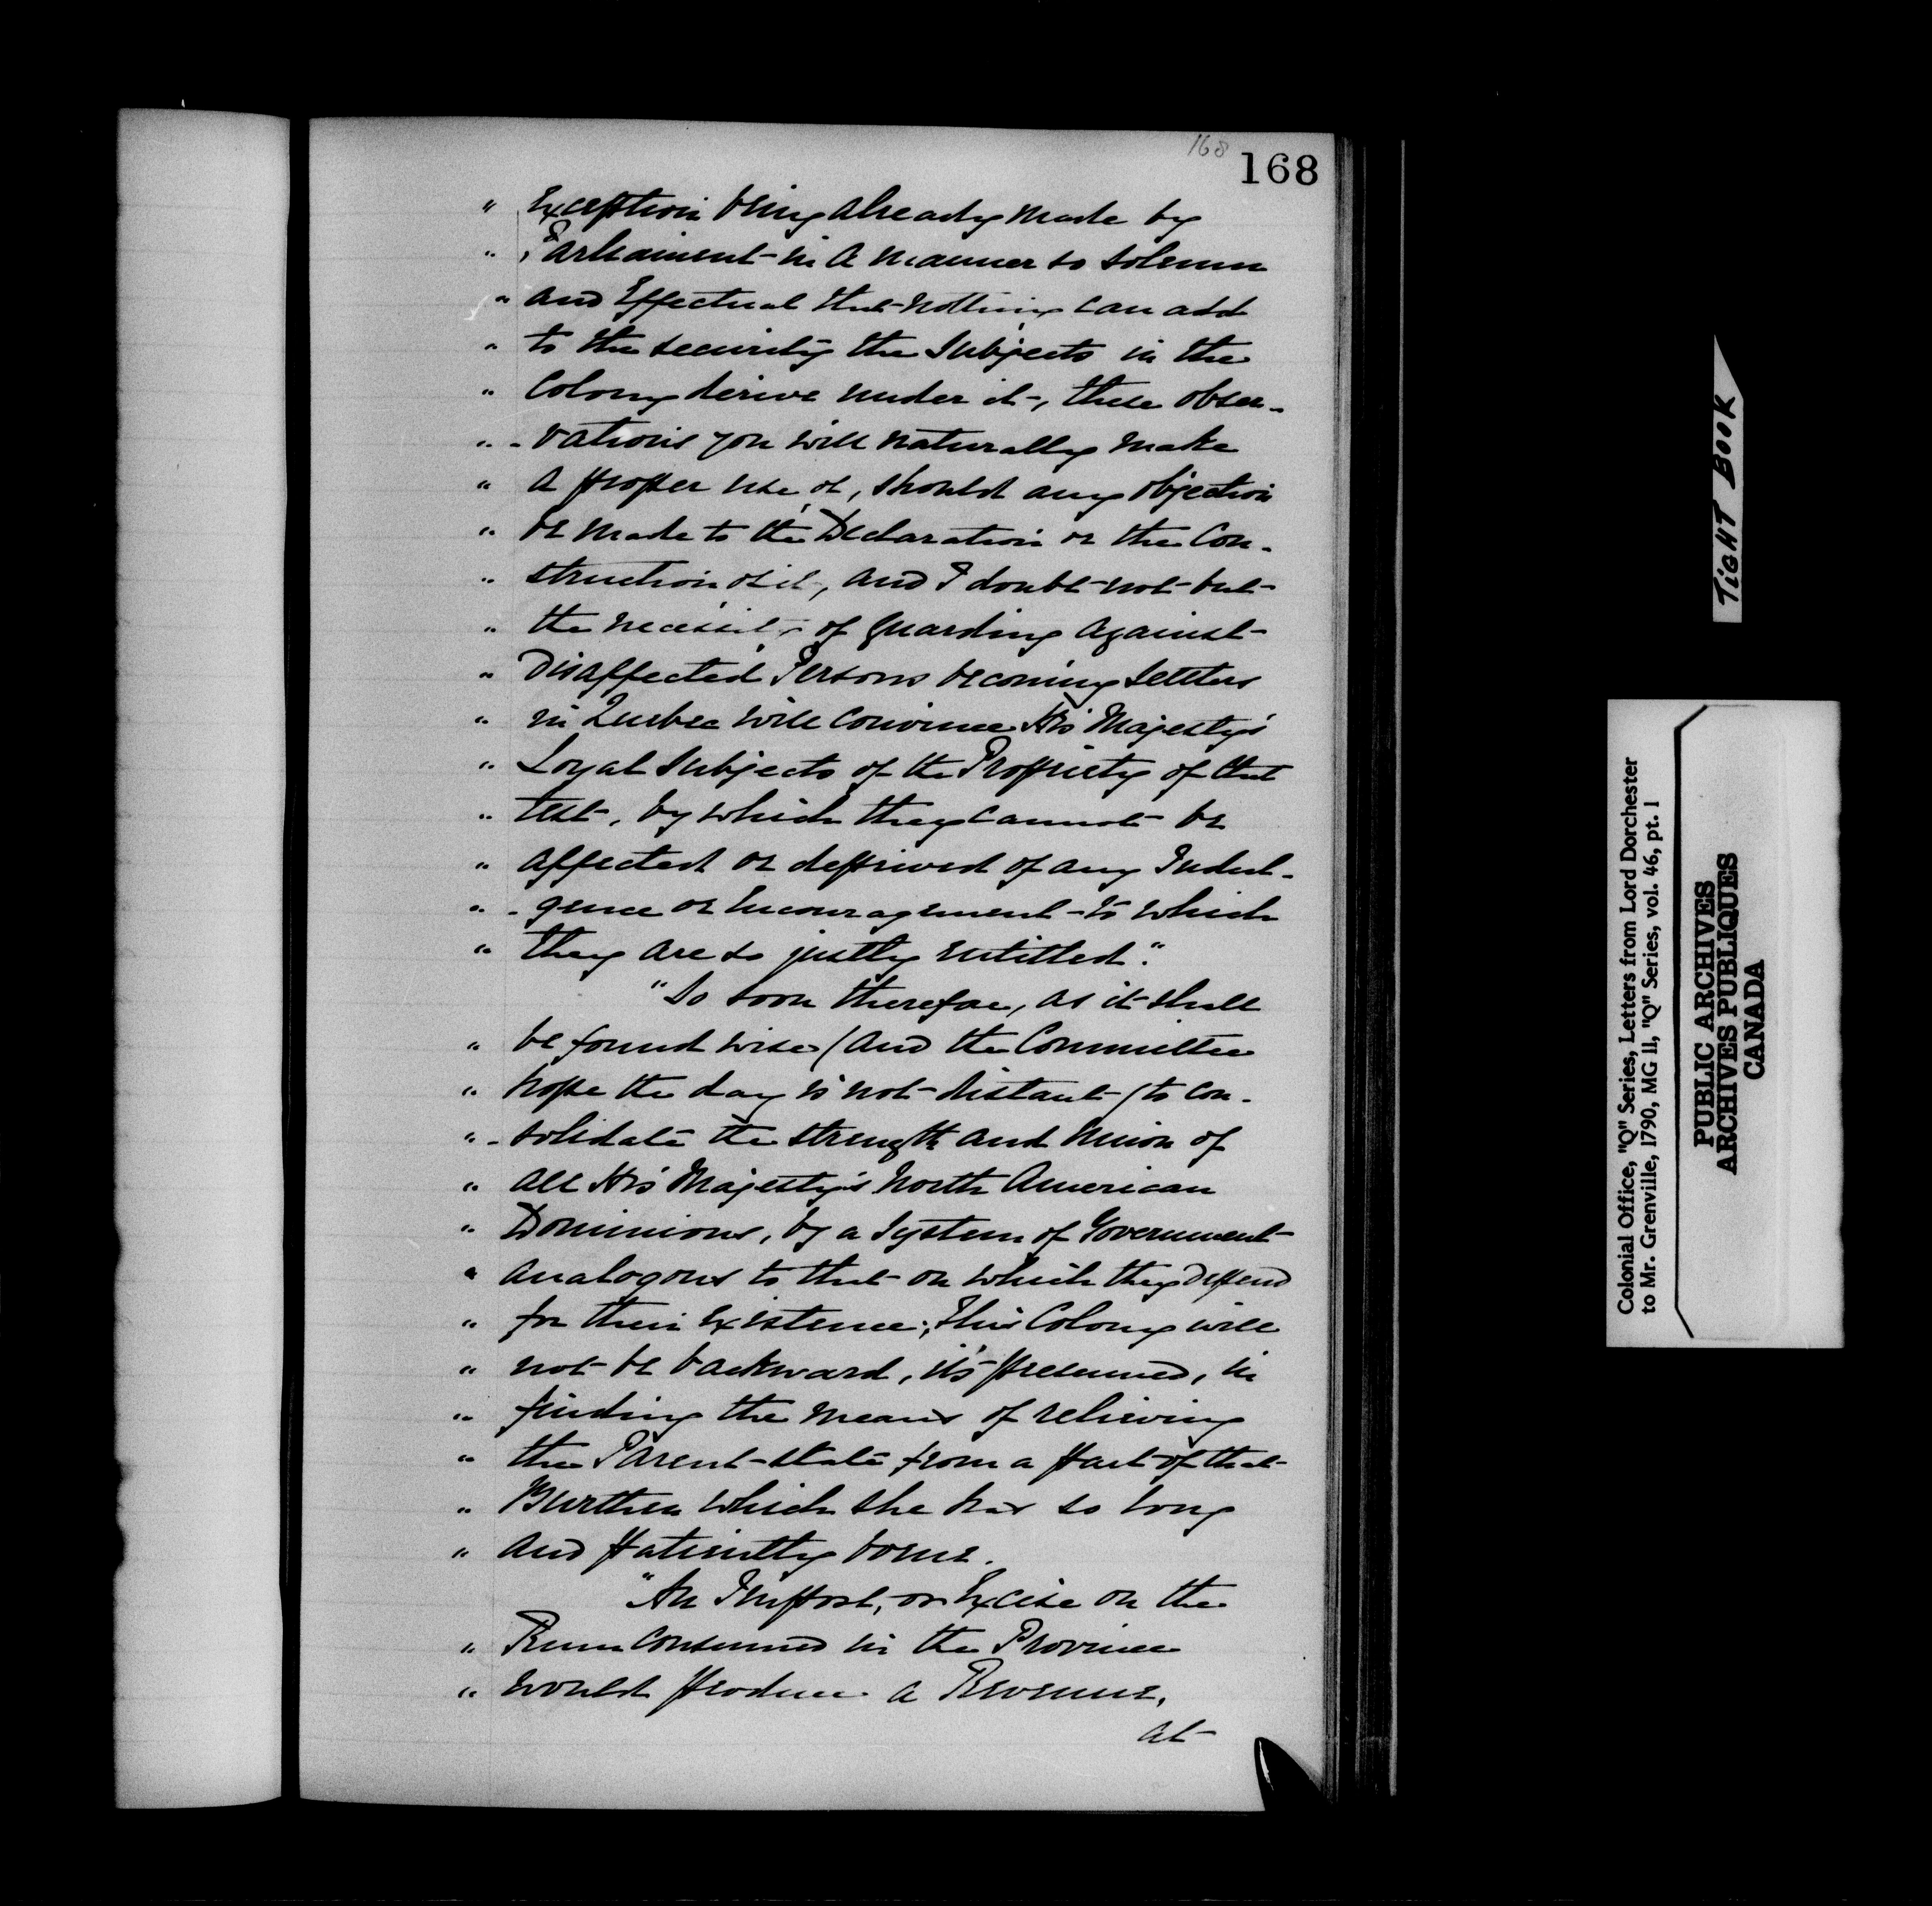 168
168
" Exception being already made by
" Parliament in a manner so solemn
" and Effectual that nothing can add
" to the security the Subjects in the
" Colony derive under it, these obser-
" -vations you will naturally make
" a proper use of, should any objection
" be made to the Declaration or the Con-
" struction of it, and I doubt not but
" the necessity of guarding against
" disaffected Persons becoming Settlers
" in Quebec will convince His Majesty's
" Loyal Subjects of the Propriety of that
" test, by which they cannot be
" affected or deprived of any Indul-
" -gence or Encouragement to which
" they are so justly entitled."
"So soon therefore, as it shall
" be found wise (and the Committee
" hope the day is not distant) to con-
" -solidate the strength and Union of
" all His Majesty's North American
" Dominions, by a System of Government
" analogous to that on which they depend
" for their Existence; this Colony will
" not be backward, it's presumed, in
" finding the means of relieving
" the Parent-State from a part of that
" Burthen which she has so long
" and patiently borne.
"An Impost, or Excise on the
" Rum consumed in the Province
" would produce a Revenue,
at
TIGHT BOOK
Colonial Office, "Q" Series, Letters from Lord Dorchester
to Mr. Grenville, 1790, MG 11, "Q" Series, vol. 46, pt. 1
PUBLIC ARCHIVES
ARCHIVES PUBLIQUES
CANADA